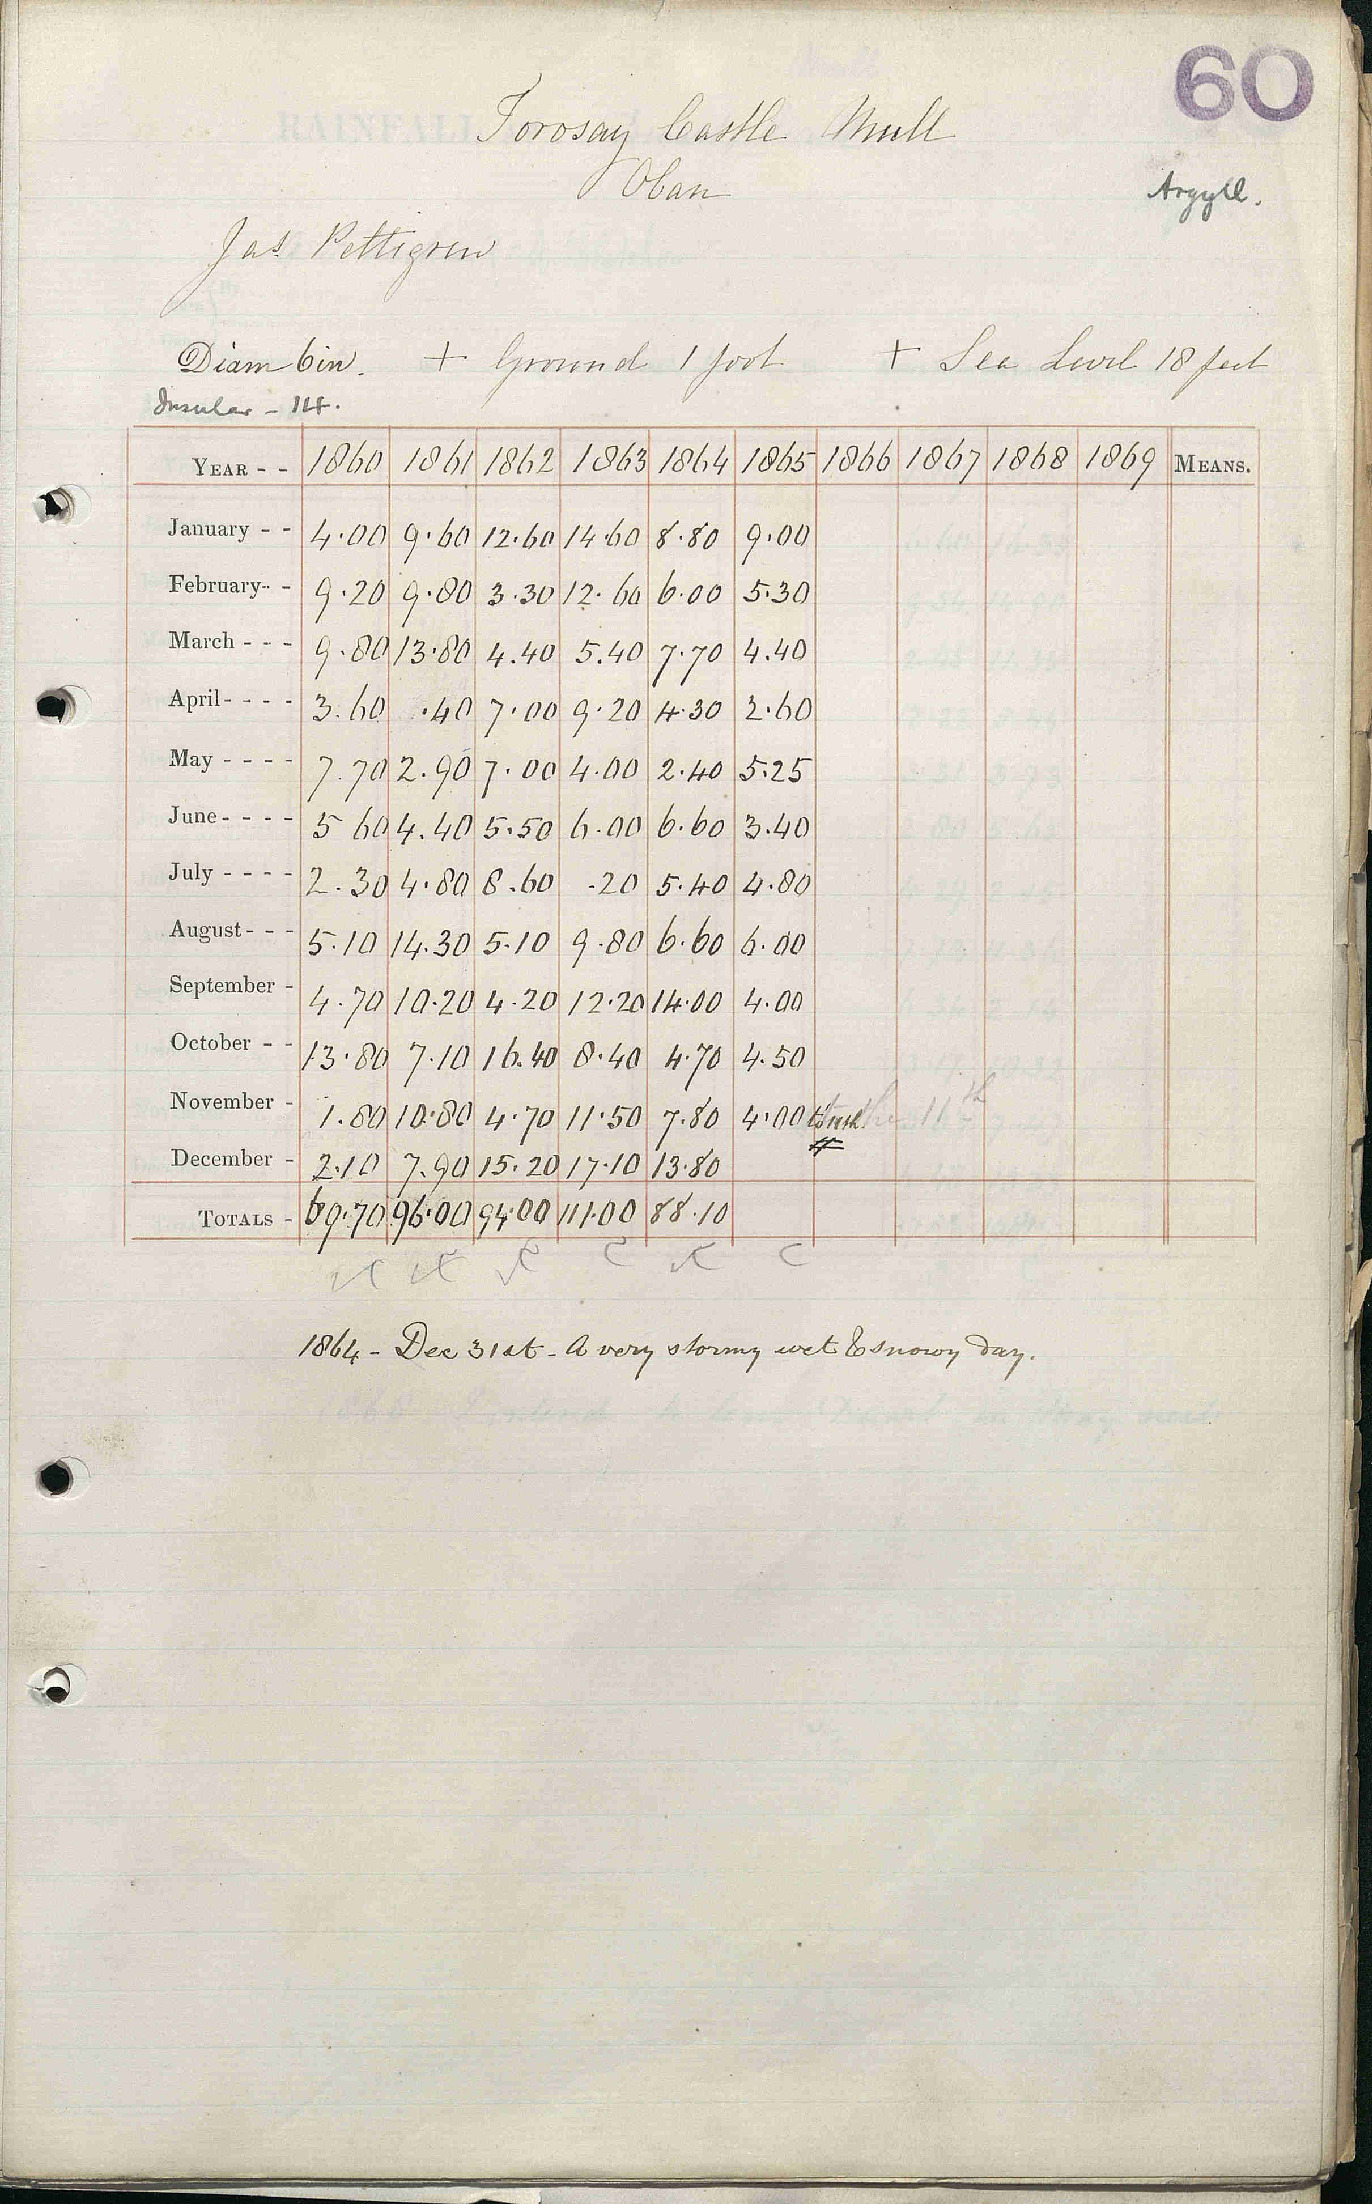 60
Torosay Castle Mull
Oban
Argyll.
Jas Pettigrew
Diam 6in. + Ground 1 foot + Sea Level 18 feet
Insular - 14.
YEAR - - 1860 1861 1862 1863 1864 1865 1866 1867 1868 1869 MEANS.
January - - 4.00 9.60 12.60 14.60 8.80 9.00
February- - 9.20 9.80 3.30 12.60 6.00 5.30
March - - - 9.80 13.80 4.40 5.40 7.70 4.40
April - - - - 3.60 .40 7.00 9.20 4.30 2.60
May - - - - 7.70 2.90 7.00 4.00 2.40 5.25
June - - - - 5 60 4.40 5.50 6.00 6.60 3.40
July - - - - 2.30 4.80 8.60 .20 5.40 4.80
August - - - 5.10 14.30 5.10 9.80 6.60 6.00
September - 4.70 10.20 4.20 12.20 14.00 4.00
October - - 13.80 7.10 16.40 8.40 4.70 4.50
November - 1.80 10.80 4.70 11.50 7.80 4.00 11th
December - 2.10 7.90 15.20 17.10 13.80
TOTALS - 69.70 96.00 94.00 111.00 88.10
1864 - Dec 31st - A very stormy wet & snowy day.